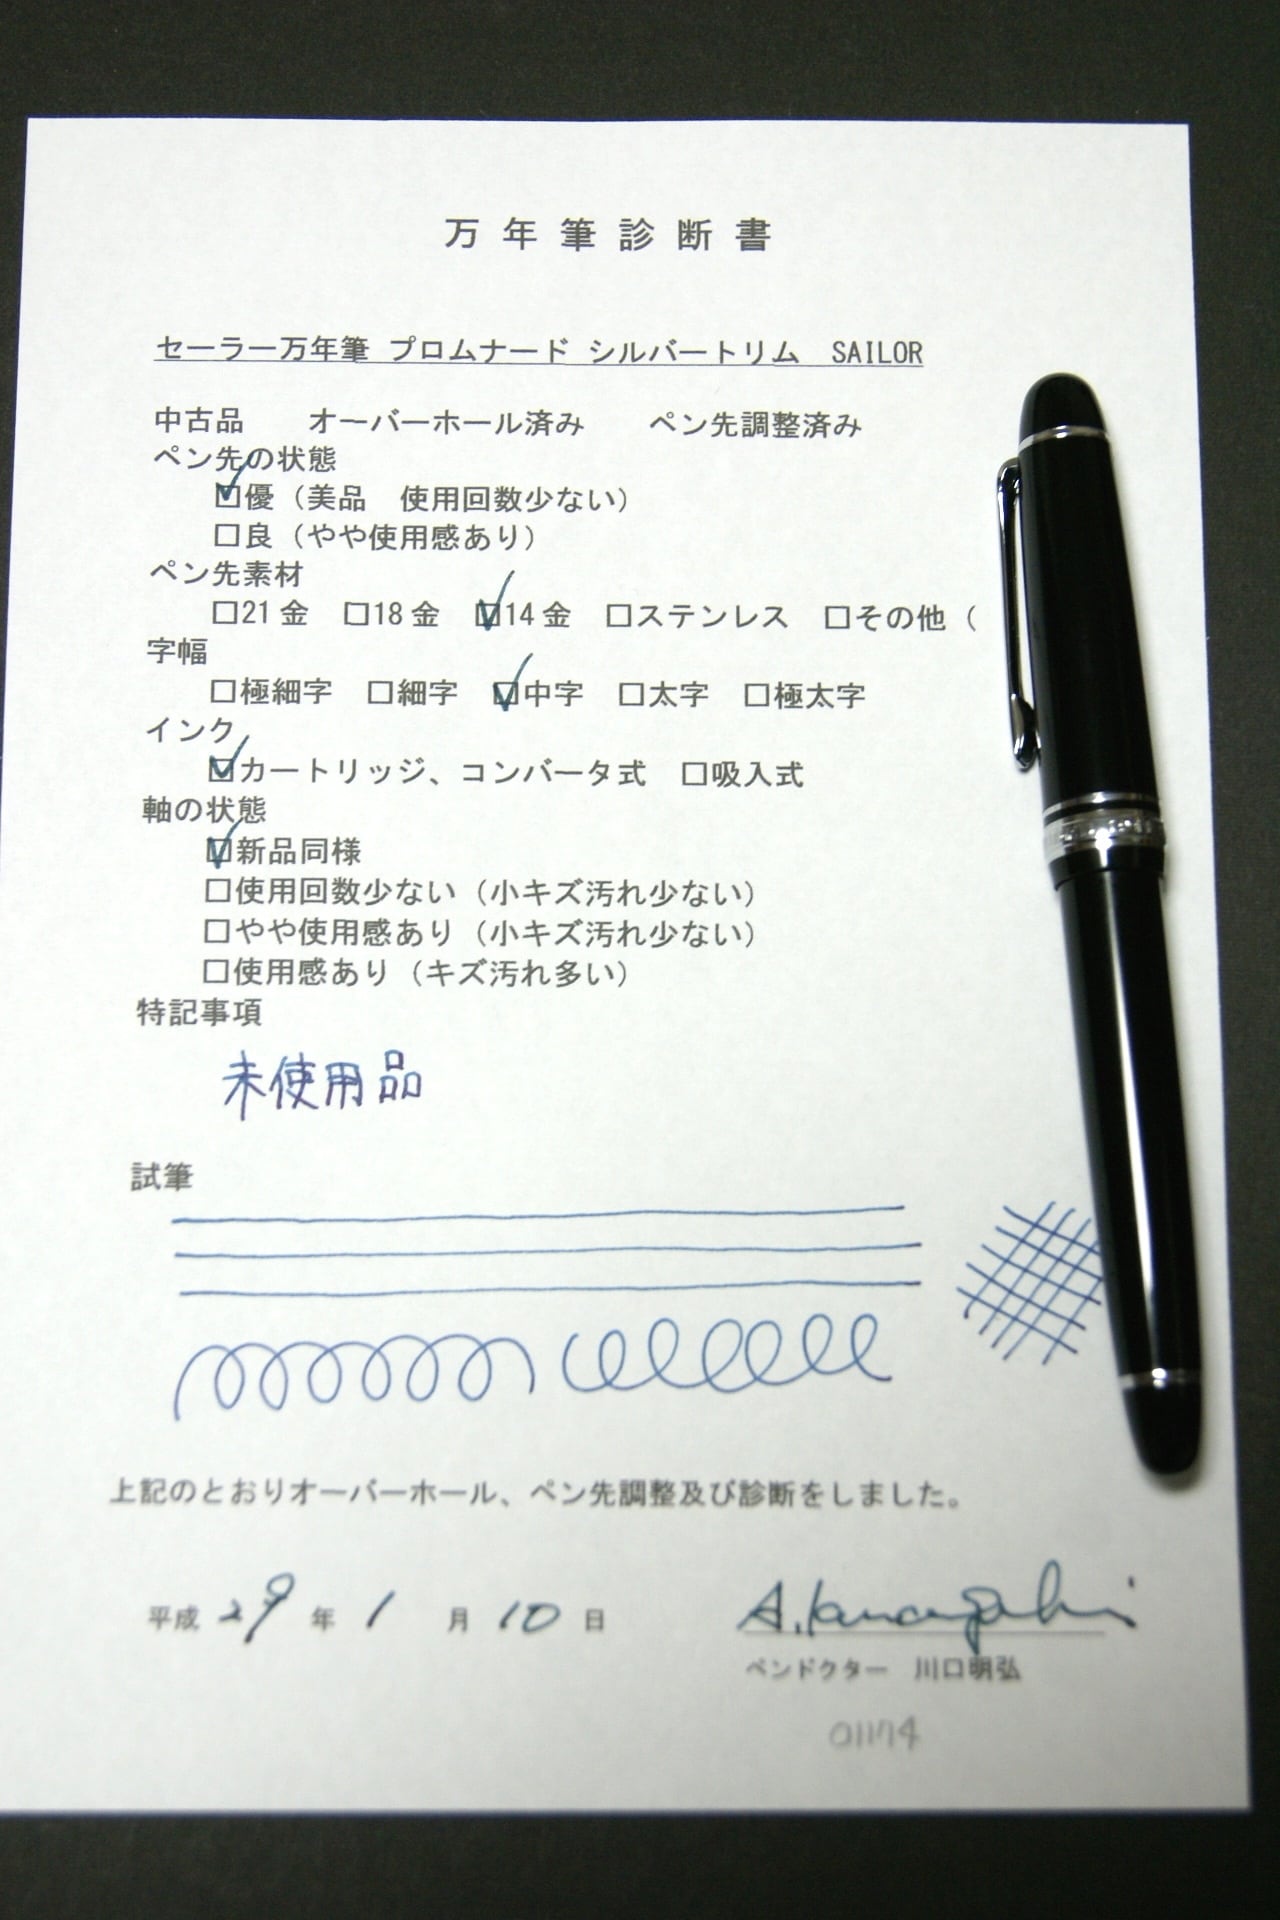 万年筆診断書
セーラー万年筆 プロムナード シルバートリム SAILOR
中古品 オーバーホール済み ペン先調整済み
ペン先の状態
☑優（美品 使用回数少ない）
□良（やや使用感あり）
ペン先素材
□21金 □18金 ☑14金 □ステンレス □その他（
字幅
□極細字 □細字 ☑中字 □太字 □極太字
インク
☑カートリッジ、コンバータ式 □吸入式
軸の状態
☑新品同様
□使用回数少ない（小キズ汚れ少ない）
□やや使用感あり（小キズ汚れ少ない）
□使用感あり（キズ汚れ多い）
特記事項
未使用品
試筆
上記のとおりオーバーホール、ペン先調整及び診断をしました。
平成 29 年 1 月 10 日
ペンドクター 川口明弘
01174